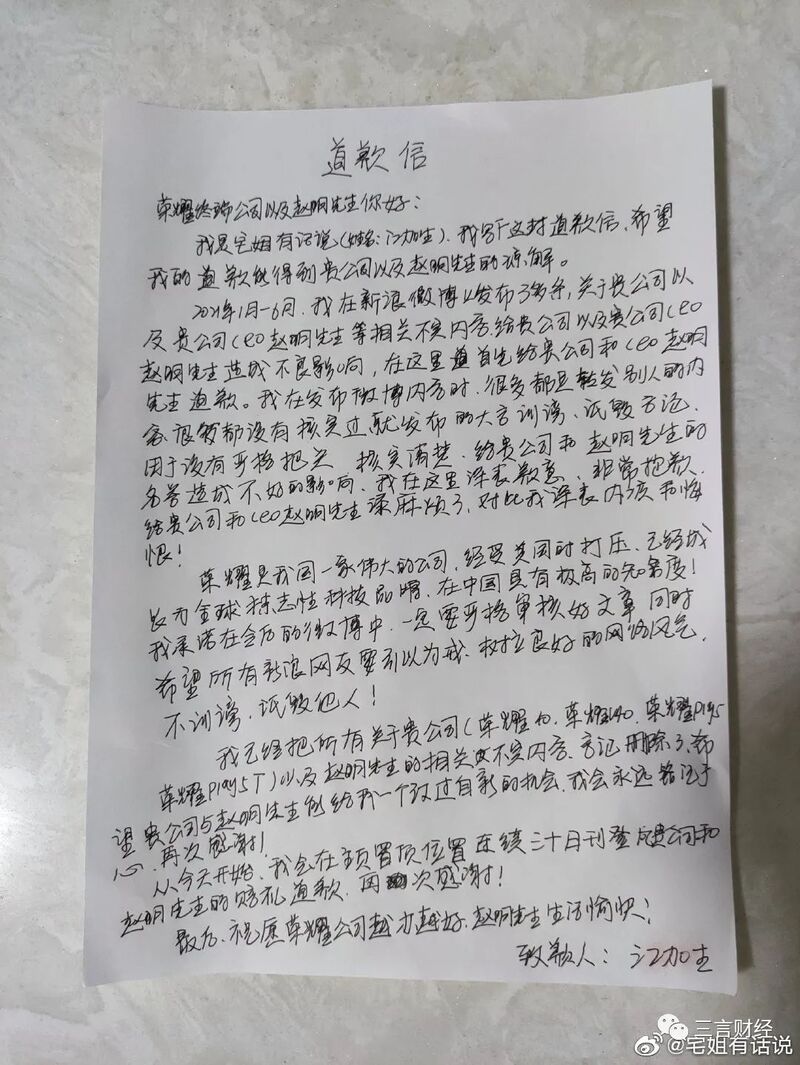 道歉信
荣耀终端公司以及赵明先生你好：
我是宅姐有话说(姓名:江加生)、我写下这封道歉信、希望
我的道歉能得到贵公司以及赵明先生的谅解。
2021年1月-6月、我在新浪微博上发布了多条,关于贵公司以
及贵公司CEO赵明先生等相关不实内容.给贵公司以及贵公司CEO
赵明先生造成不良影响，在这里首先给贵公司和CEO赵明
先生道歉。我在发布微博内容时、很多都是转发别人的内
容、很多都没有核实过、就发布的大言训谤、诋毁言论、
由于没有严格把关 核实清楚、给贵公司和赵明先生的
名誉造成不好的影响、我在这里深表歉意、非常抱歉、
给贵公司和CEO赵明先生添麻烦了、对此我深表内疚和悔
恨！
荣耀是我国一家伟大的公司、经受美国时打压、已经成
长为全球标志性科技品牌、在中国具有极高的知名度！
我承诺在今后的微博中、一定要严格审核好文章 同时
希望所有新浪网友要引以为戒、树立良好的网络风气、
不训谤、诋毁他人！
我已经把所有关于贵公司(荣耀40、荣耀V40、荣耀Play5
荣耀Play5T)以及赵明先生的相关不实内容、言论删除了、希
望贵公司与赵明先生能给我一个改过自新的机会、我会永远铭记于
心、再次感谢！
从今天开始、我会在主页置顶位置连续三十日刊登对贵公司和
赵明先生的赔礼道歉、再次感谢！
最后、祝愿荣耀公司越办越好、赵明先生生活愉快！
致歉人：江加生
三言财经
@宅姐有话说